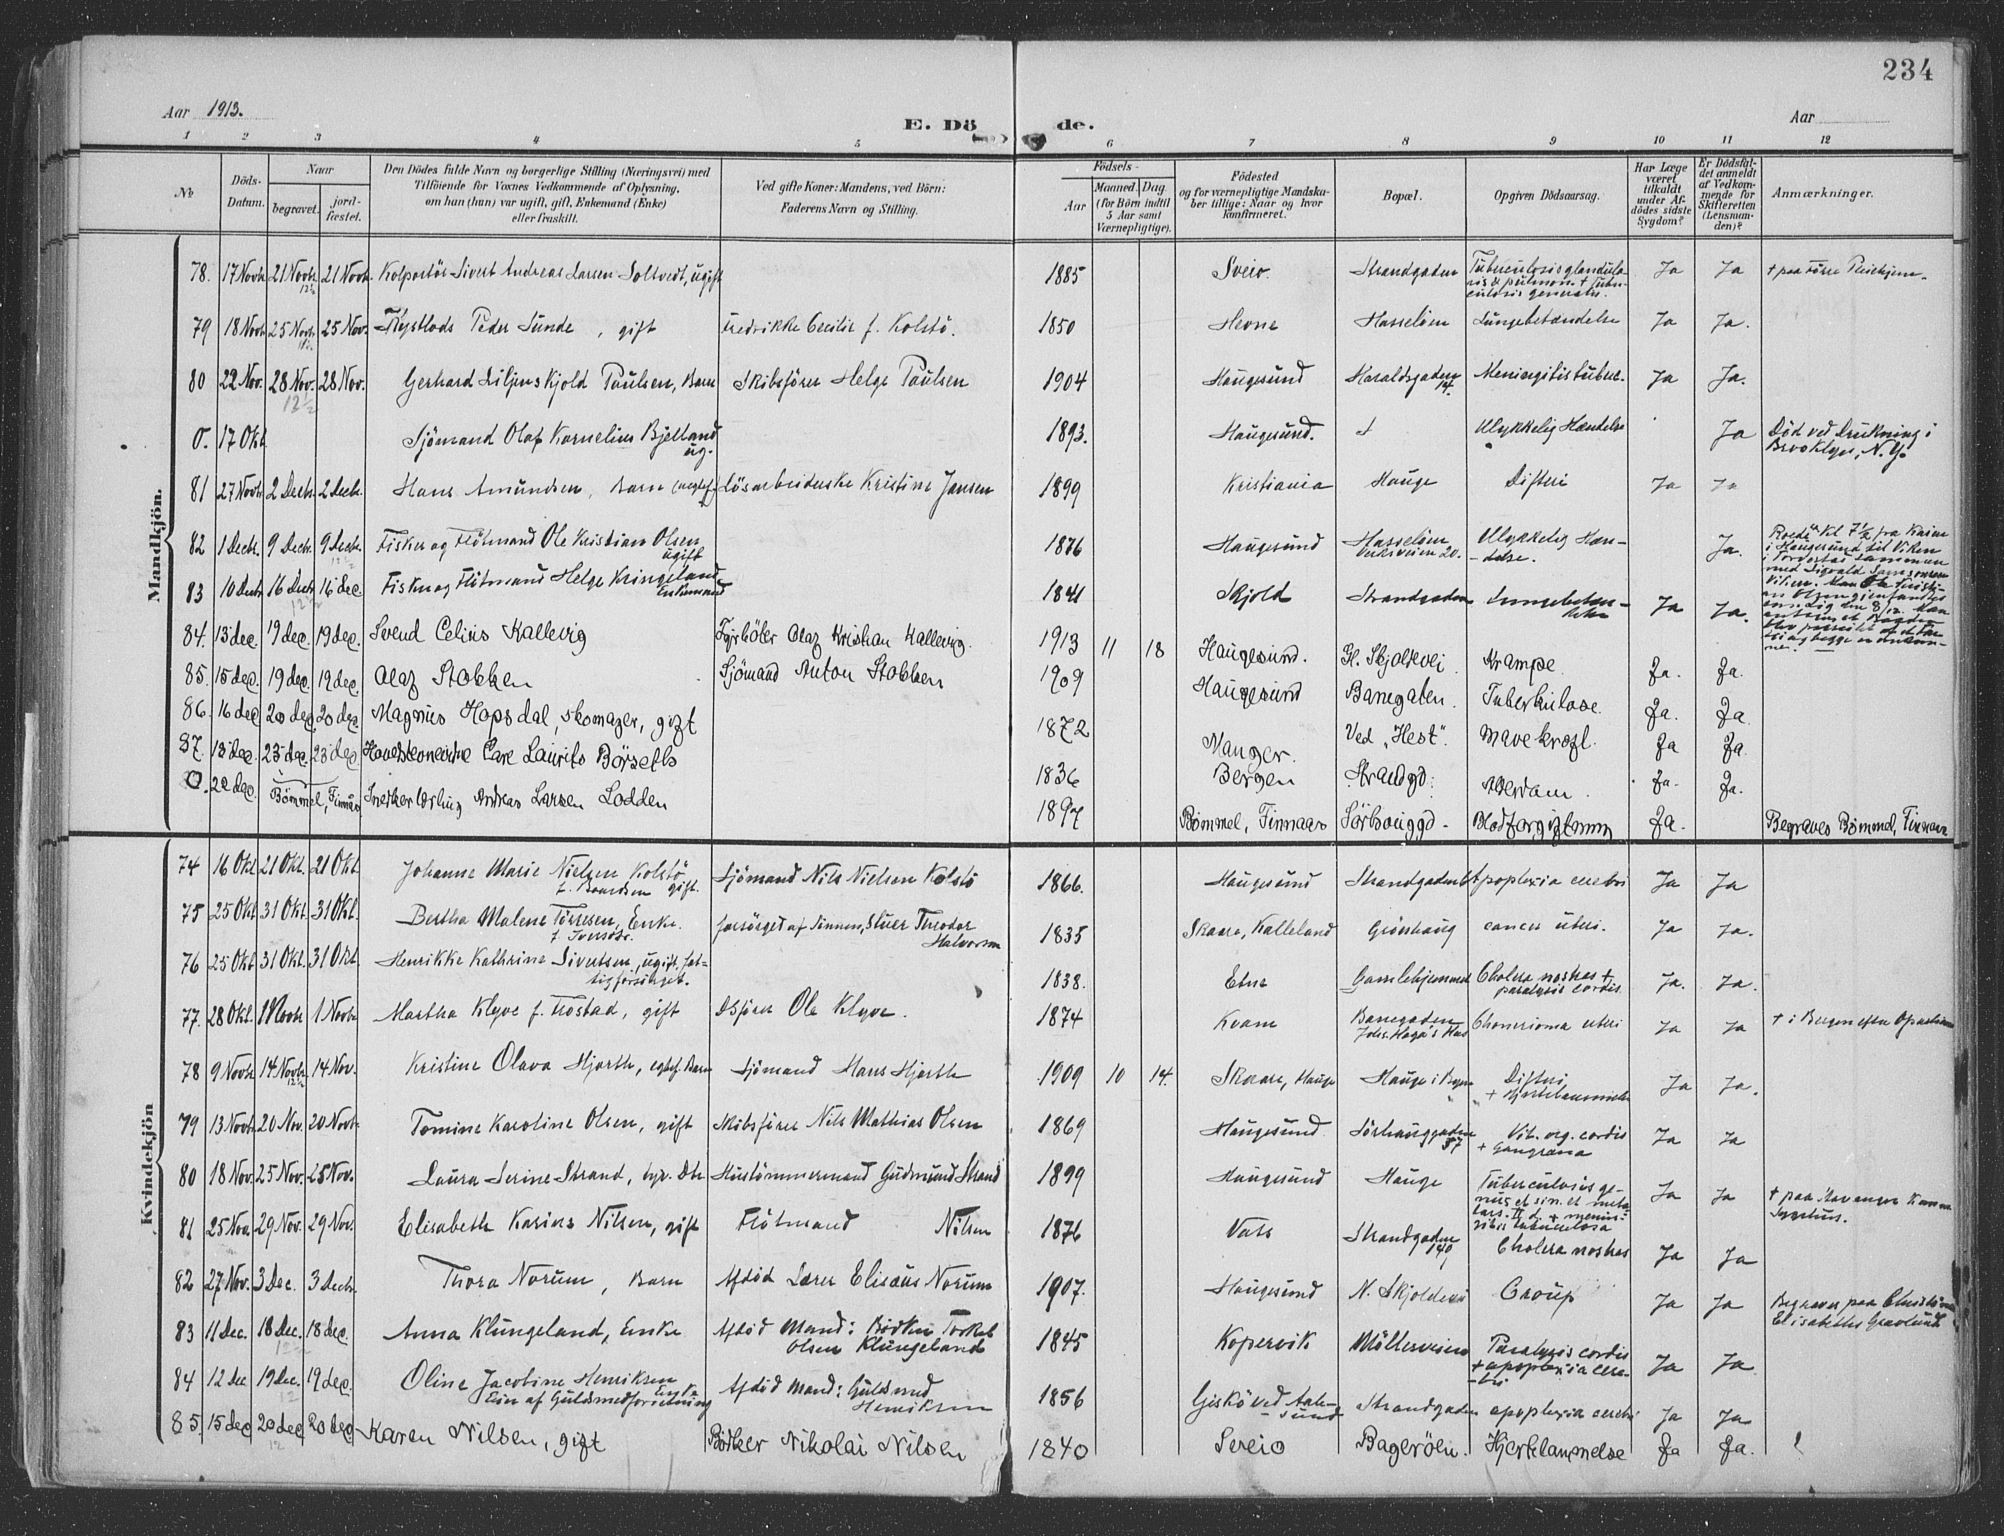 234
Aar 1913.
E. Döde.
Aar
1 2 3 4 5 6 7 8 9 10 11 12
No.
Döds-Datum.
Naar
begravet.
jordfæstet.
Den Dödes fulde Navn og borgerlige Stilling (Næringsvei) med
Tilföiende for Voxnes Vedkommende af Oplysning,
om han (hun) var ugift, gift, Enkemand (Enke)
eller fraskilt.
Ved gifte Koner: Mandens, ved Börn:
Faderens Navn og Stilling.
Födsels-
Aar
Maaned. Dag
(for Börn indtil
5 Aar samt
Værnepligtige).
Födested
og for værnepligtige Mandska-
ber tillige: Naar og hvor
konfirmeret.
Bopæl.
Opgiven Dödsaarsag.
Har Læge
været
tilkaldt
under Af-
dödes sidste
Sygdom?
Er Dödsfal-
det anmeldt
af Vedkom-
mende for
Skifteretten
(Lensman-
den)?
Anmærkninger.
Mandkjön.
78. 17 Novbr 21 Novbr 12½ 21 Novbr. Kolportör Sivert Andreas Larsen Soltvedt, ugift 1885 Sveio. Strandgaden Tuberculosis glandula-
ris & pulmon. + Tuber-
culosis generalis. Ja Ja + paa Förre Pleiehjem.
79 18 Novbr 25 Novbr 25 Nov. Peder Sunde, gift Fredrikke Cecilie f. Kolstö. 1850 Hevne Hasselöen Lungebetændelse Ja Ja.
80 22 Nov. 28 Nov. 12½ 28 Nov. Gerhard Liljenskjold Paulsen, Barn Skibsförer Helge Paulsen 1904 Haugesund Haraldsgaden 14. Meningitis tuberc. Ja Ja.
0. 17 Okt Sjömand Olaf Kornelius Bjelland ug. 1893. Haugesund. Ulykkelig Hændelse Ja Död ved Drukning i
Brooklyn, N.Y.
81 27 Novbr 2 Decbr 2 Decbr. Hans Amundsen, Barn Lösarbeiderske Kristine Jansen 1899 Kristiania Hauge Difteri Ja Ja
82 1 Decbr. 9 Decbr. 9 Decbr. Fisker og Flötmand Ole Kristian Olsen ugift 1876 Haugesund Hasselöen 20. Ulykkelig Hæn-
delse. Ja. Roede Kl. 7½ fra Kaien
i Haugesund til Viken
i Torvestad sammen
med Sigvald Samsonsen
Viken.
83 10 Decbr 16 Decbr 12½ 16 dec Fisker og Flötmand Helge Kringeland Enkemand 1841 Skjold Strandgaden Lungebetæn-
delse Ja Ja.
84. 13 dec. 19 dec. 19 dec. Svend Celius Kallevig Fyrböter Olaf Kristian Kallevig. 1913 11 18 Haugesund. Gl. Skjoldevei Krampe. Ja. Ja.
85. 15 dec. 19 dec. 19 dec. Olaf Stokken Sjömand Anton Stokken 1909 Haugesund Banegaten. Tuberkulose. Ja. Ja
86. 16 dec 20 dec. 20 dec. Magnus Hopsdal, skomager, gift 1872 Manger. Ved "Hest". Mavekræft. Ja Ja.
87. 13 dec. 23 dec. 23 dec Lauritz Börseth 1836 Bergen Strandgd. Alderdom. Ja. Ja.
0. 22 dec. Bömmel, Finnås Snedkerlærling Andreas Larsen Lodden 1897 Bömmel, Finnaas Sörhauggd. Blodforgiftning Ja. Begraves Bömmel, Finnaas
Kvindekjön
74 16 Okt 21 Okt. 21 Okt. Johanne Marie Nielsen Kolstö
gift. Sjömand Nils Nielsen Kolstö 1866. Haugesund Strandgaden Apoplexia cerebri Ja Ja
75 25 Okt 31 Okt 31 Okt. Bertha Malene Törresen, Enke. forsörget af Sönnen, Stuer Theodor
Halvorsen 1835 Skaare, Kalleland Grönhaug cancer uteri. Ja Ja.
76 25 Okt 31 Okt. 31 Okt. Henrikke Kathrine Sivertsen, ugift, fat-
tigforsörget. 1838. Etne Gamlehjemmet Cholera nostras +
paralysis cordis. Ja. Ja.
77. 28 Okt. 1 Novbr 1 Novbr Martha Klyve f. Trostad, gift Ole Klyve. 1874 Kvam Banegaden
Johs. Haga's Hus uteri Ja Ja + i Bergen efter Operation
78 9 Novbr 14 Novbr 12½ 14 Nov. Kristine Olava Hjorth, egtef. Barn Sjömand Hans Hjorth 1909 10 14. Skaare, Hauge Hauge i Byen Difteri
+ Hjertelammelse Ja Ja.
79 13 Novbr. 20 Nov. 20 Novbr. Tomine Karoline Olsen, gift Skibsförer Nils Mathias Olsen 1869 Haugesund Sörhauggaden 57 Vit. org. cordis
+ gangræna Ja Ja
80 18 Nov. 25 Nov. 25 Nov. Laura Serine Strand, Hustömmermand Gudmund Strand 1899 Haugesund Hauge Tuberculosis ge-
nus et sin. et meta-
tars. II d. + menin-
gitis tuberculosa Ja Ja + paa Stavanger Kom.
Sygehus.
81 25 Nov 29 Nov. 29 Nov. Elisabeth Karine Nilsen, gift Flötmand Nilsen 1876 Vats Strandgaden 140 Cholera nostras Ja Ja
82 27 Nov. 3 Dec. 3 Decbr. Thora Norum, Barn Afdöd Lærer Elisæus Norum 1907. Haugesund N. Skjoldevei Croup Ja Ja
83 11 Dec. 18 Dec. 12½ 18 dec. Anna Klungeland, Enke Afdöd Mand: Bödker Torkel
Olsen Klungeland 1845 Kopervik Möllerveien Paralysis cordis
+ apoplexia cere-
bri Ja Ja. Begraves paa
Elisabeths Gravlund
84 12 Dec 19 Dec. 12 19 dec. Oline Jacobine Henriksen Enke
Eier af Guldsmedforretning Afdöd Mand: Guldsmed
Henriksen 1856 Giskö ved Aale-
sund Strandgaden apoplexia cerebri Ja Ja
85. 15 dec 20 dec 12 20 dec Karen Nilsen, gift Bödker Nikolai Nilsen 1840 Sveio Bageröen. Hjertelammelse Ja Ja.